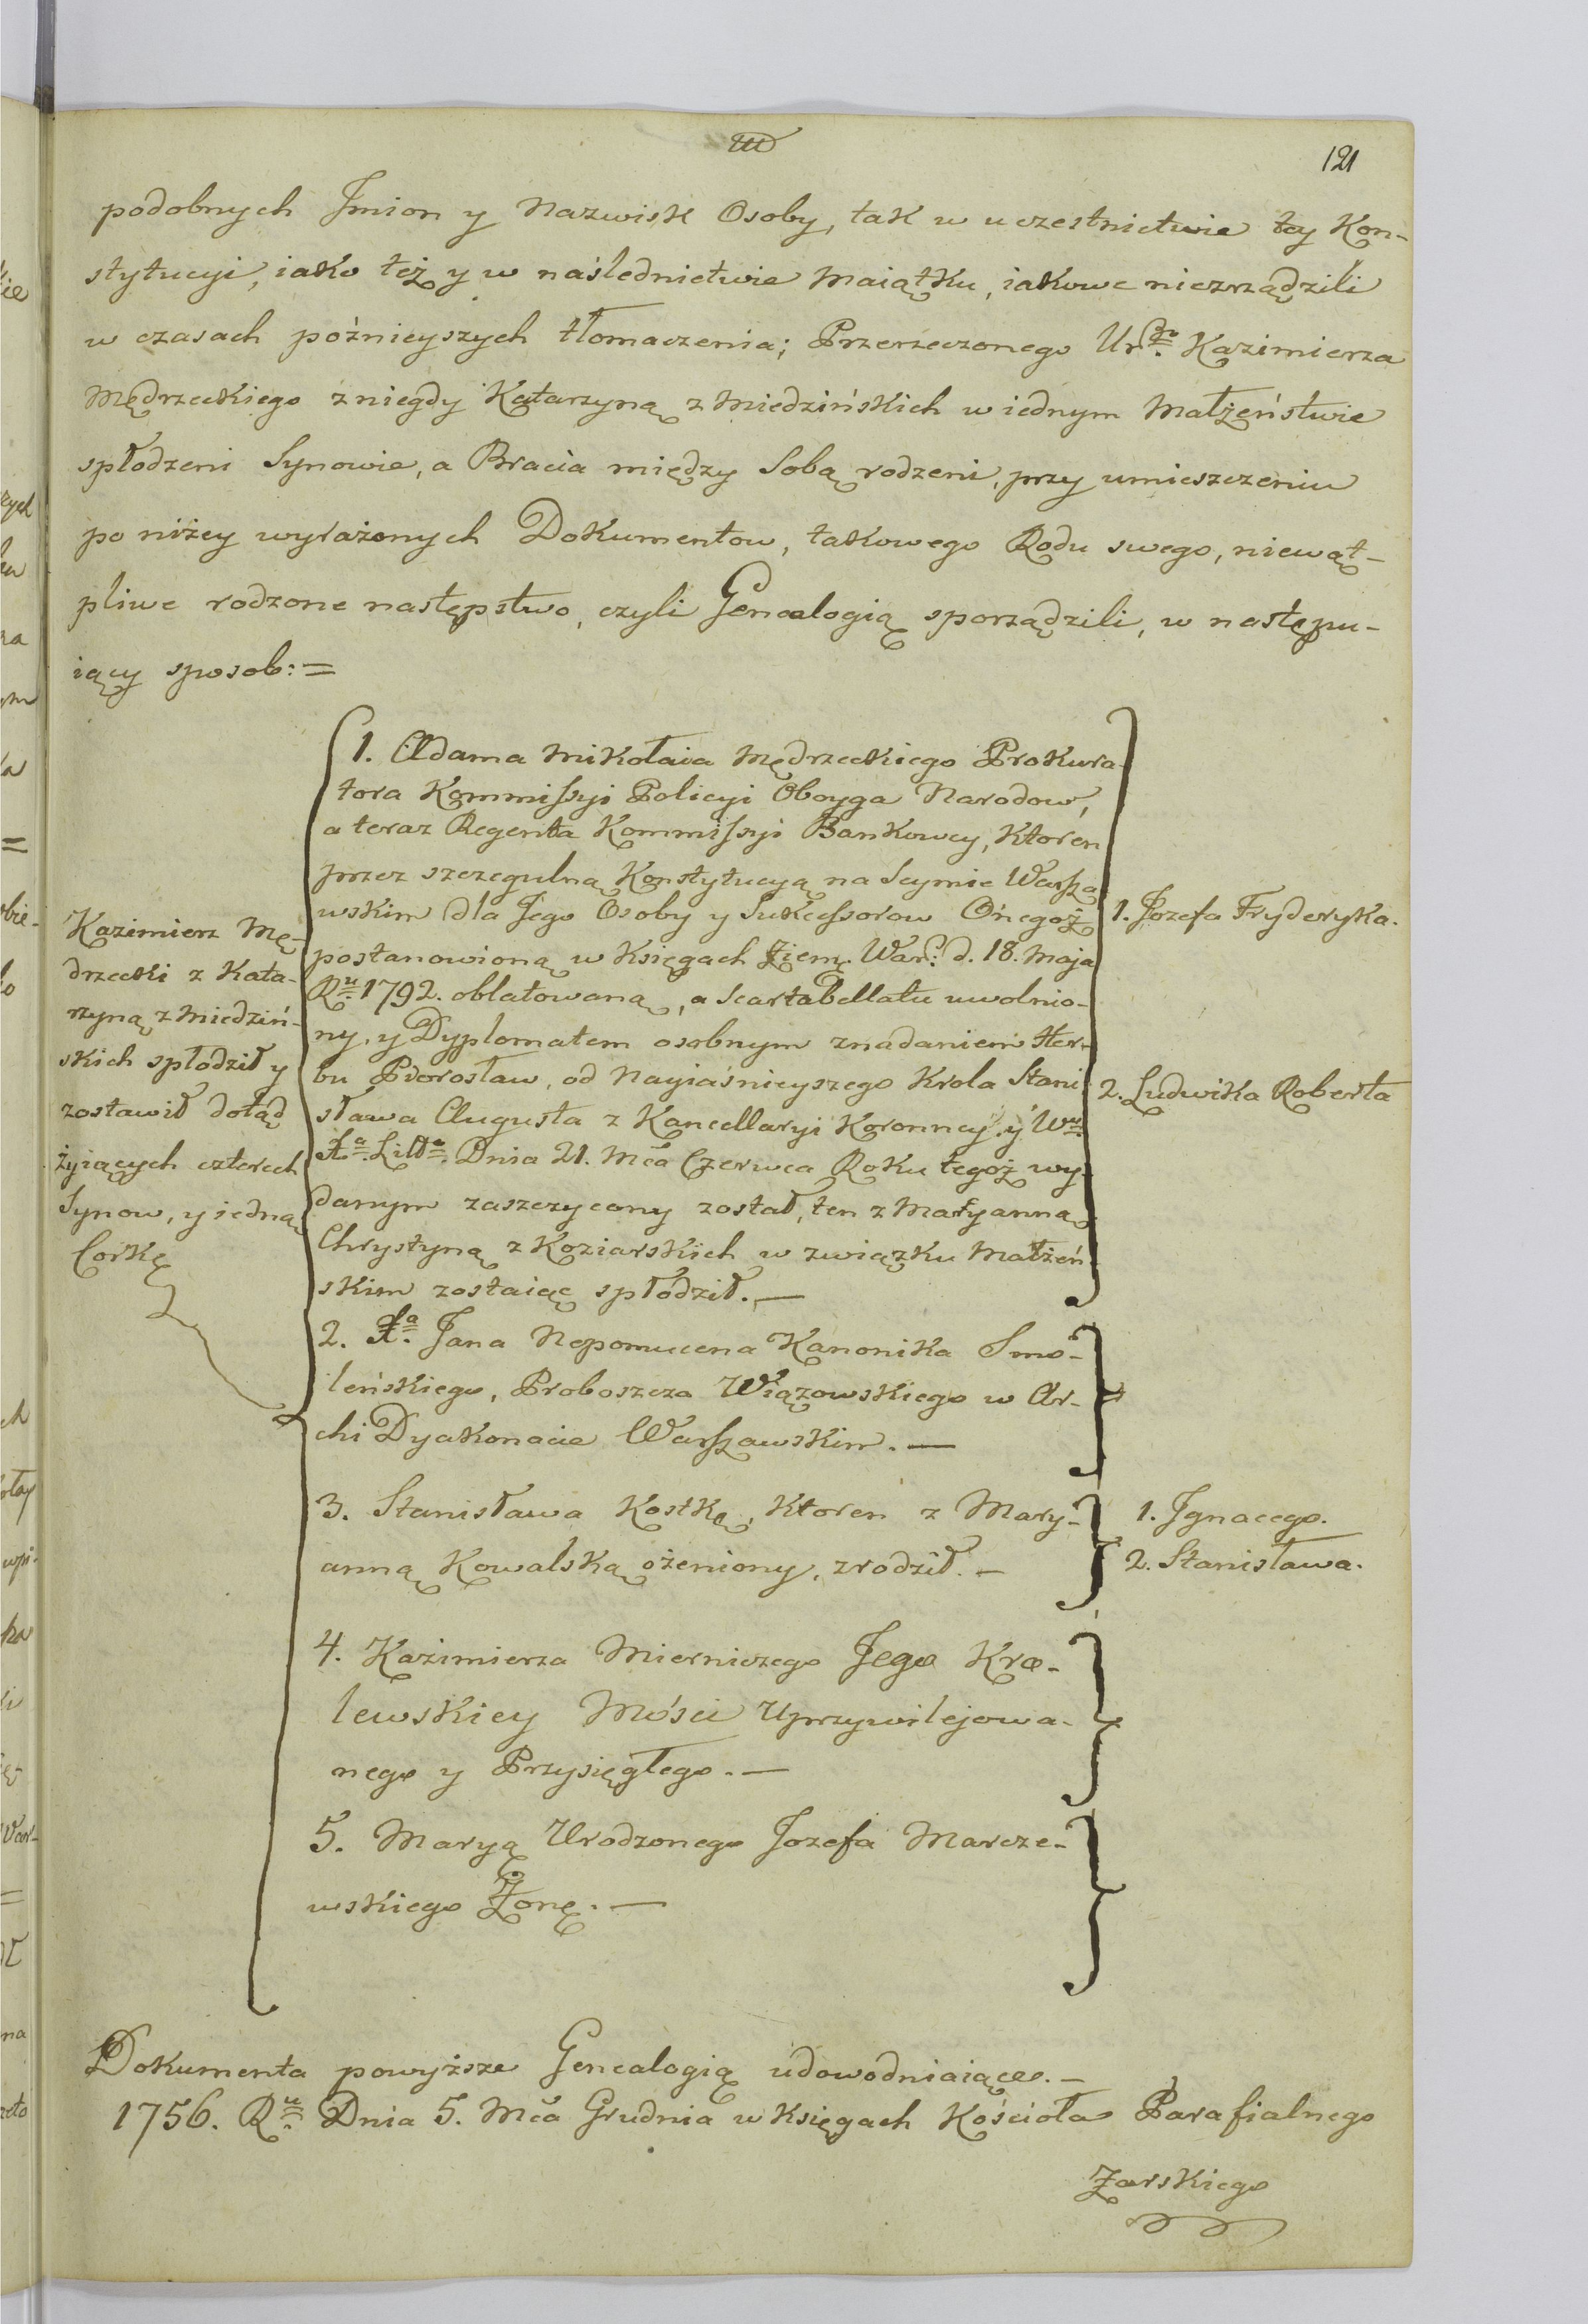 121
podobnych Jmion y Nazwisk Osoby, tak w uczestnictwie tey Kon-
stytucyi, iako też y w naślednictwie Maiątku, iakowe niezrządzili
w czasach poźnieyszych tłomaczenia; Przerzeczonego Ur<sup>go</sup>. Kazimierza
Mędrzeckiego z niegdy Katarzyną z Miedzińskich w iednym Małżeństwie
spłodzeni Synowie, a Bracia między Sobą rodzeni, przy umieszczeniu
po niżey wyrażonych Dokumentow, takowego Rodu swego, niewąt-
pliwe rodzone następstwo, czyli Genealogią sporządzili, w następu-
iący sposob: =
Kazimierz Mę-
drzecki z Kata-
rzyną z Miedziń-
skich spłodził y
zostawił dotąd
żyiących czterech
Synow, y iedną
Corkę
1. Adama Mikołaia Mędrzeckiego Prokura-
tora Kommissyi Policyi Oboyga Narodow,
a teraz Regenta Kommissyi Bankowey, Ktoren
przez szczegulną Konstytucyą na Seymie Warsza
wskim dla Jego Osoby y Sukcessorow Onegoż
postanowioną w Księgach Ziem. War: d. 18. Maja
R<sup>u</sup>. 1792. oblatowaną, a Scartabellatu uwolnio-
ny, y Dyplomatem osobnym z nadaniem Her-
bu Pvorosław, od Nayiaśnieyszego Krola Stani
sława Augusta z Kancellaryi Koronney y W<sup>u</sup>.
X<sup>a</sup>. Litt<sup>o</sup>. Dnia 21. Mca Czerwca Roku tegoż wy-
danym zaszczycony został, ten z Maryanną
Chrystyną z Koziarskich w związku Małżeń-
skim zostaiąc spłodził. —
1. Jozefa Fryderyka.
2. Ludwika Roberta
2. X<sup>a</sup>. Jana Nepomucena Kanonika Smo-
leńskiego, Proboszcza Wiązowskiego w Ar-
chi Dyakonacie Warszawskim. —
3. Stanisława Kostkę, Ktoren z Mary-
anną Kowalską ożeniony, zrodził. —
1. Jgnacego.
2. Stanisława.
4. Kazimierza Mierniczego Jego Kro-
lewskiey Mości Uprzywilejowa-
nego y Przysięgłego. —
5. Maryą Urodzonego Jozefa Marcze-
wskiego Żonę. —
Dokumenta powyższe Genealogią udowodniaiące. —
1756. R<sup>u</sup>. Dnia 5. Mca Grudnia w Księgach Kościoła Parafialnego
Żarskiego